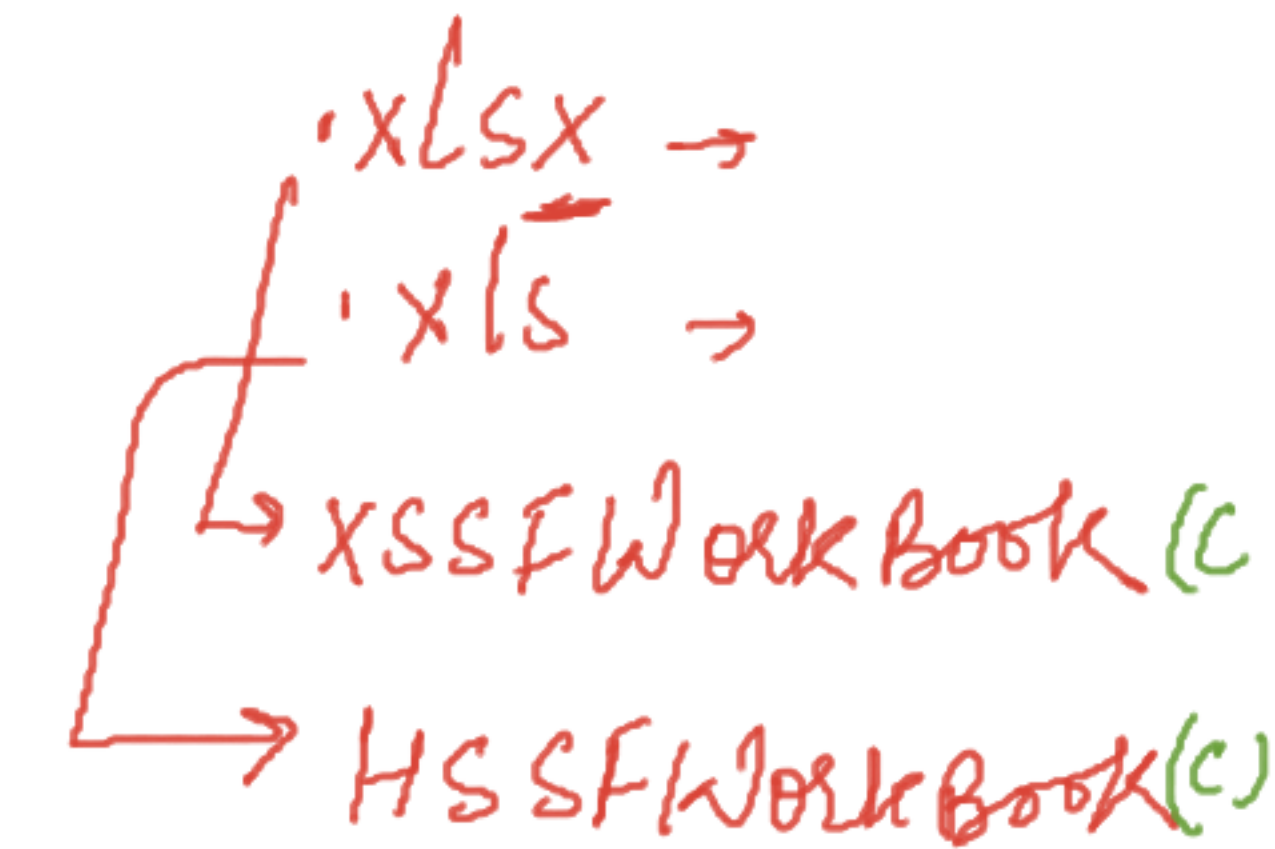 .xlsx →
.xls →
XSSFWorkBook (C
HSSFWorkBook (C)